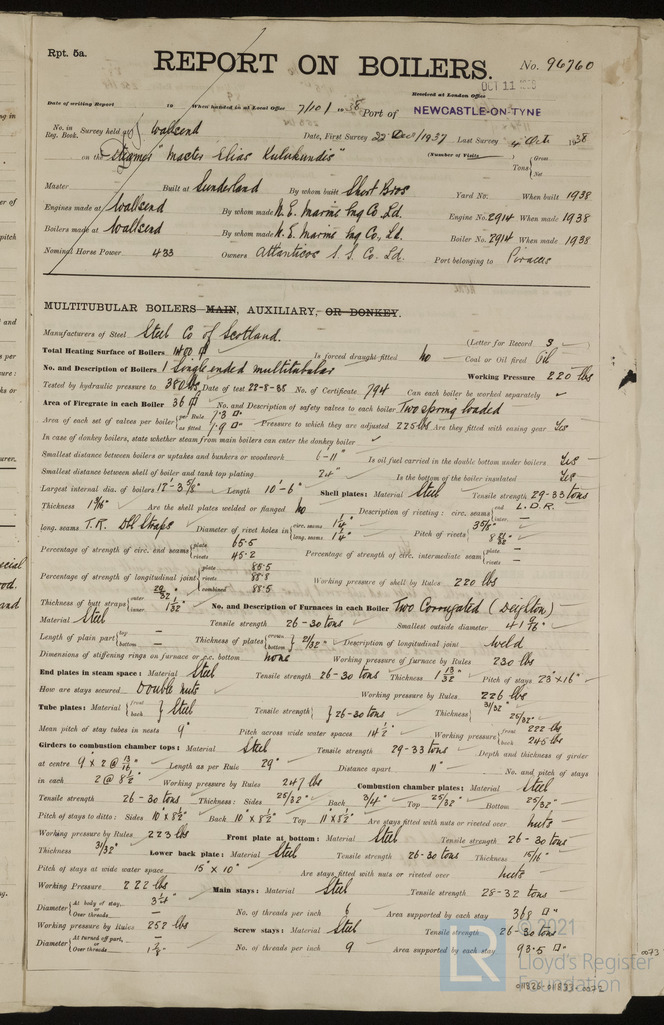 Rpt. 5a.
REPORT ON BOILERS.
No. 96760
OCT 11 1938
Received at London Office
Date of writing Report 19 When handed in at Local Office 7/10/ 1938 Port of NEWCASTLE-ON-TYNE
No. in Reg. Book. Survey held at Wallsend Date, First Survey 22 Dec/1937 Last Survey 4 Oct. 1938
on the Steamer "Master Elias Kulukundis" (Number of Visits ) Tons { Gross Net
Master Built at Sunderland By whom built Short Bros Yard No. When built 1938
Engines made at Wallsend By whom made N. E. Marine Eng Co Ld. Engine No. 2914 When made 1938
Boilers made at Wallsend By whom made N. E. Marine Eng Co., Ld. Boiler No. 2914 When made 1938
Nominal Horse Power 433 Owners Atlanticos S. S. Co. Ld. Port belonging to Piraeus
MULTITUBULAR BOILERS MAIN, AUXILIARY, OR DONKEY.
Manufacturers of Steel Steel Co of Scotland. (Letter for Record S )
Total Heating Surface of Boilers Is forced draught fitted No Coal or Oil fired Oil
No. and Description of Boilers 1 Single ended multitubular Working Pressure 220 lbs
Tested by hydraulic pressure to 380 lbs Date of test 22-8-38 No. of Certificate 794 Can each boiler be worked separately ✓
Area of Firegrate in each Boiler 36 No. and Description of safety valves to each boiler Two spring loaded
Area of each set of valves per boiler { per Rule 7.3 as fitted 7.9 Pressure to which they are adjusted 225 lbs Are they fitted with easing gear Yes
In case of donkey boilers, state whether steam from main boilers can enter the donkey boiler ✓
Smallest distance between boilers or uptakes and bunkers or woodwork 6'-11" Is oil fuel carried in the double bottom under boilers Yes
Smallest distance between shell of boiler and tank top plating 24" Is the bottom of the boiler insulated Yes
Largest internal dia. of boilers 12'-3 5/8" Length 10'-6" Shell plates: Material Steel Tensile strength 29-33 tons
Thickness Are the shell plates welded or flanged No Description of riveting: circ. seams { end L.D.R. inter. —
long. seams T.R. Dbl Straps Diameter of rivet holes in { circ. seams 1 1/4" long. seams 1 1/4" Pitch of rivets {
Percentage of strength of circ. end seams { plate 65.5 rivets 45.2 Percentage of strength of circ. intermediate seam { plate — rivets —
Percentage of strength of longitudinal joint { plate 85.5 rivets 88.8 combined 88.5 Working pressure of shell by Rules 220 lbs
Thickness of butt straps { outer 29/32" inner 1 1/32" No. and Description of Furnaces in each Boiler Two Corrugated (Deighton)
Material Steel Tensile strength 26-30 tons Smallest outside diameter
Length of plain part { top — bottom — Thickness of plates { crown bottom } 21/32" Description of longitudinal joint Weld
Dimensions of stiffening rings on furnace or c.c. bottom None Working pressure of furnace by Rules 230 lbs
End plates in steam space: Material Steel Tensile strength 26-30 tons Thickness 1 13/32 Pitch of stays 23" x 16"
How are stays secured Double nuts Working pressure by Rules 226 lbs
Tube plates: Material { front back } Steel Tensile strength } 26-30 tons Thickness { 31/32" 25/32"
Mean pitch of stay tubes in nests 9" Pitch across wide water spaces 14 1/2" Working pressure { front 222 lbs back 245 lbs
Girders to combustion chamber tops: Material Steel Tensile strength 29-33 tons Depth and thickness of girder
at centre 9" x 2 @ 13/16 Length as per Rule 29" Distance apart 11" No. and pitch of stays
in each 2 @ 8 1/2" Working pressure by Rules 247 lbs Combustion chamber plates: Material Steel
Tensile strength 26-30 tons Thickness: Sides 25/32" Back 3/4" Top 25/32" Bottom 25/32"
Pitch of stays to ditto: Sides 10" x 8 1/2" Back 10" x 8 1/2" Top 11" x 8 1/2" Are stays fitted with nuts or riveted over Nuts
Working pressure by Rules 223 lbs Front plate at bottom: Material Steel Tensile strength 26-30 tons
Thickness 31/32" Lower back plate: Material Steel Tensile strength 26-30 tons Thickness 15/16"
Pitch of stays at wide water space 15" x 10" Are stays fitted with nuts or riveted over Nuts
Working Pressure 222 lbs Main stays: Material Steel Tensile strength 28-32 tons
Diameter { At body of stay, or Over threads — No. of threads per inch 6 Area supported by each stay 368
Working pressure by Rules 252 lbs Screw stays: Material Steel Tensile strength 26-30 tons
Diameter { At turned off part, or Over threads No. of threads per inch 9 Area supported by each stay 93.5
© 2021
LR
Lloyd's Register
Foundation
0073